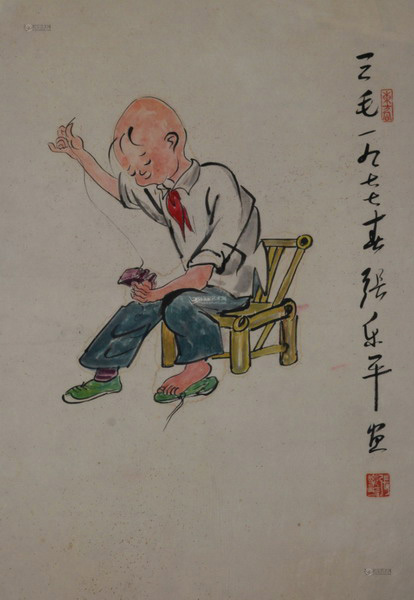 三毛一九七七春张乐平画